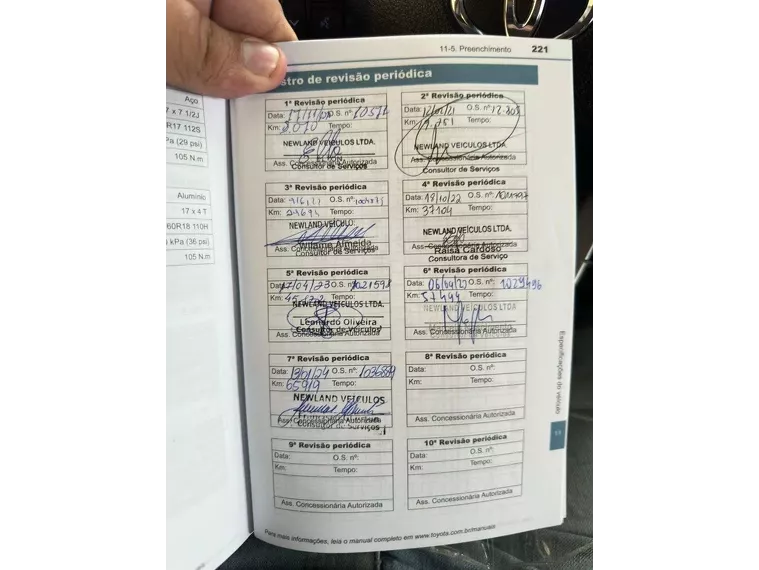 11-5. Preenchimento 221
stro de revisão periódica
Aço
7 x 7 1/2J
R17 112S
Pa (29 psi)
105 N.m
Alumínio
17 x 4 T
60R18 110H
kPa (36 psi)
105 N.m
1ª Revisão periódica
Data: O.S. nº:
Km: Tempo:
NEWLAND VEÍCULOS LTDA.
Ass. Concessionária Autorizada
Consultor de Serviços
2ª Revisão periódica
Data: O.S. nº: 12.808
Km: Tempo:
NEWLAND VEÍCULOS LTDA.
Ass. Concessionária Autorizada
Consultor de Serviços
3ª Revisão periódica
Data: O.S. nº:
Km: 29694 Tempo:
NEWLAND VEÍCULO
Almeida
Ass. Concessionária Autorizada
Consultor de Serviços
4ª Revisão periódica
Data: 18/10/22 O.S. nº:
Km: 37104 Tempo:
NEWLAND VEÍCULOS LTDA.
Raisa Cardoso
Ass. Concessionária Autorizada
Consultora de Serviço
5ª Revisão periódica
Data: 17/04/23 O.S. nº: 1021598
Km: Tempo:
NEWLAND VEÍCULOS LTDA.
Leonardo Oliveira
Consultor de Veículos
Ass. Concessionária Autorizada
6ª Revisão periódica
Data: O.S. nº: 1029496
Km: 57444 Tempo:
NEWLAND VEÍCULOS LTDA
Ass. Concessionária Autorizada
7ª Revisão periódica
Data: O.S. nº:
Km: 65919 Tempo:
NEWLAND VEÍCULOS
Ass. Concessionária Autorizada
Consultor de Serviços
8ª Revisão periódica
Data: O.S. nº:
Km: Tempo:
Ass. Concessionária Autorizada
9ª Revisão periódica
Data: O.S. nº:
Km: Tempo:
Ass. Concessionária Autorizada
10ª Revisão periódica
Data: O.S. nº:
Km: Tempo:
Ass. Concessionária Autorizada
Especificações do veículo
11
Para mais informações, leia o manual completo em www.toyota.com.br/manuais